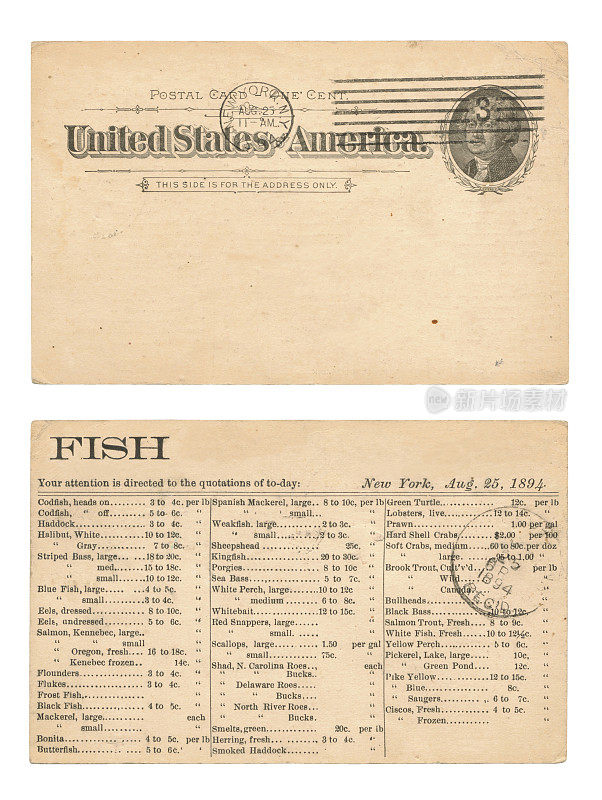 POSTAL CARD ONE CENT.
NEW YORK, N.Y.
AUG 25
11-AM.
3
United States of America.
THIS SIDE IS FOR THE ADDRESS ONLY.
new 新片场素材
FISH
Your attention is directed to the quotations of to-day: New York, Aug. 25, 1894
Codfish, heads on......... 3 to 4c. per lb
Codfish, “ off......... 5 to 6c. “
Haddock............... 3 to 4c. “
Halibut, White...........10 to 12c. “
“ Gray............. 7 to 8c. “
Striped Bass, large......18 to 20c. “
“ med.......15 to 18c. “
“ small......10 to 12c. “
Blue Fish, large .....4 to 5c. “
“ small...........3 to 4c. “
Eels, dressed ...........8 to 10c. “
Eels, undressed ..........5 to 6c. “
Salmon, Kennebec, large.. “
“ “ small “
“ Oregon, fresh.... 16 to 18c. “
“ Kenebec frozen.. 14c. “
Flounders................3 to 4c. “
Flukes ..................3 to 4c. “
Frost Fish............... “
Black Fish ..............4 to 5c. “
Mackerel, large........... each
“ small........... “
Bonita...................4 to 5c. per lb
Butterfish...............5 to 6c. “
Spanish Mackerel, large.. 8 to 10c. per lb
“ “ small... “
Weakfish, large...........2 to 3c. “
“ small..........2 to 3c. “
Sheepshead 25c. “
Kingfish..............20 to 30c. “
Porgies ...............8 to 10c “
Sea Bass ..............5 to 7c. “
White Perch, large........10 to 12c “
“ medium.......6 to 8c. “
Whitebait.............12 to 15c. “
Red Snappers, large...... “
“ small. ..... “
Scallops, large ..... 1.50 per gal
“ small.......... 75c. “
Shad, N. Carolina Roes... each
“ “ Bucks.. “
“ Delaware Roes.... “
“ “ Bucks.... “
“ North River Roes... “
“ “ Bucks. “
Smelts, green............20c. per lb
Herring, fresh ...........3 to 4c. “
Smoked Haddock........ “
Green Turtle.............. 12c. per lb
Lobsters, live............12 to 14c. “
Prawn.................... 1.00 per gal
Hard Shell Crabs, $2.00 per 100
Soft Crabs, medium .....60 to 80c. per doz
“ large........95 to 1.00 “
Brook Trout, Cult'v'd.... per lb
“ Wild..... “
“ Canada... “
Bullheads................ “
Black Bass 10 to 12c “
Salmon Trout, Fresh 8 to 9c. “
White Fish, Fresh .....10 to 12½c. “
Yellow Perch........... 5 to 6c. “
Pickerel, Lake, large...... 10c, “
“ Green Pond .... 12c. “
Pike Yellow............12 to 15c. “
“ Blue................ 8c. “
“ Saugers.......... 6 to 7c. “
Ciscos, Fresh......... 4 to 5c. “
“ Frozen........... “
1894
REC'D.